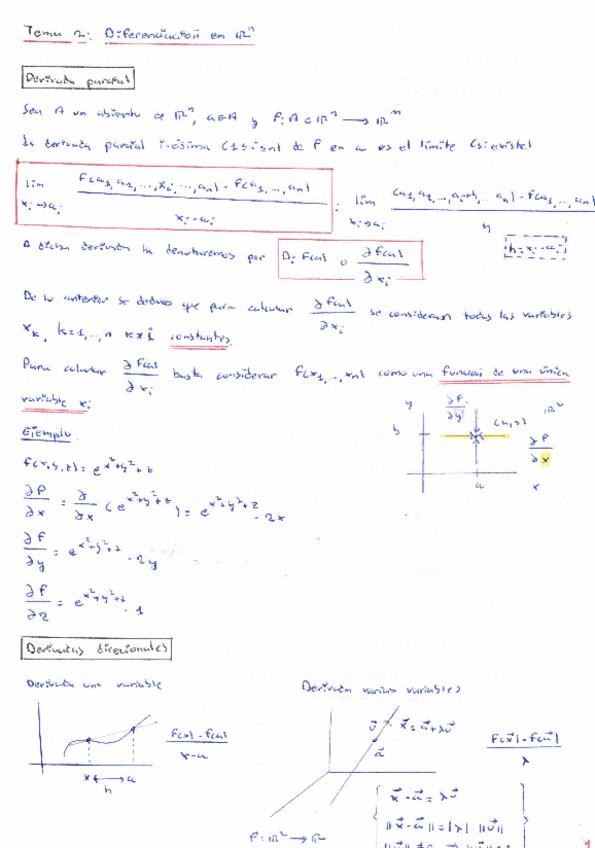 Tema 2: Diferenciación en ℝⁿ
Derivada parcial
Sea A un abierto de ℝⁿ, a∈A y f: A⊂ℝⁿ → ℝᵐ
La derivada parcial i-ésima (1≤i≤n) de f en a es el límite (si existe)
lim_{xᵢ→aᵢ} (f(a₁, a₂, ..., xᵢ, ..., aₙ) - f(a₁, ..., aₙ)) / (xᵢ - aᵢ) = lim_{xᵢ→aᵢ} (a₁, a₂, ..., aᵢ+h, ... aₙ) - f(a₁, ..., aₙ) / h
h = xᵢ - aᵢ
A dicha derivada la denotaremos por Dᵢ f(a) o ∂f(a)/∂xᵢ
De lo anterior se deduce que para calcular ∂f(a)/∂xᵢ se consideran todas las variables
xₖ, k=1,..,n k≠i constantes.
Para calcular ∂f(a)/∂xᵢ basta considerar f(x₁, ..., xₙ) como una función de una única
variable xᵢ
y ∂f/∂y (a,b) ℝ²
b ∂f/∂x
a x
Ejemplo.
f(x,y,z) = e^{x²+y²+z}
∂f/∂x = ∂/∂x (e^{x²+y²+z}) = e^{x²+y²+z} · 2x
∂f/∂y = e^{x²+y²+z} · 2y
∂f/∂z = e^{x²+y²+z} · 1
Derivadas direccionales
Derivada una variable
f(x) - f(a) / x - a
x a
h
Derivada varias variables
v⃗ x⃗ = a⃗ + λv⃗
a⃗
f(x⃗) - f(a⃗) / λ
x⃗ - a⃗ = λv⃗
||x⃗ - a⃗|| = |λ| · ||v⃗||
f: ℝ² → ℝ
1